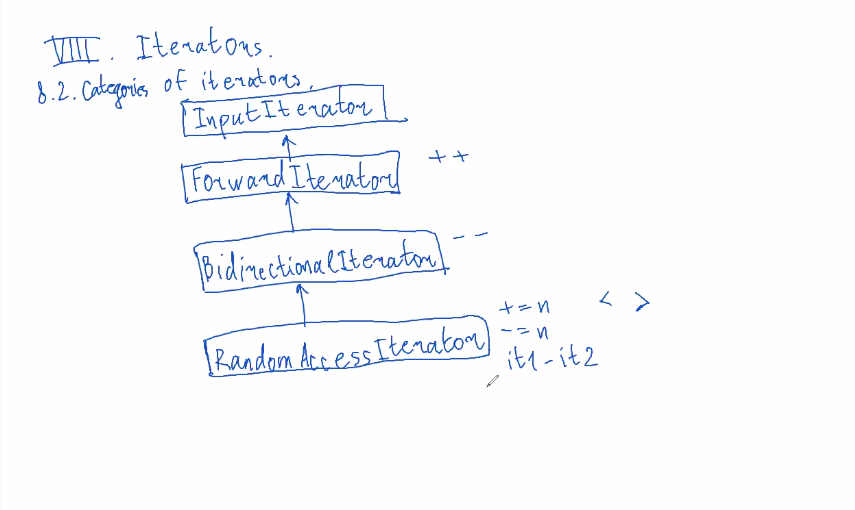 VIII. Iterators.
8.2. Categories of iterators.
InputIterator
ForwardIterator ++
BidirectionalIterator --
+=n < >
-=n
RandomAccessIterator
it1-it2